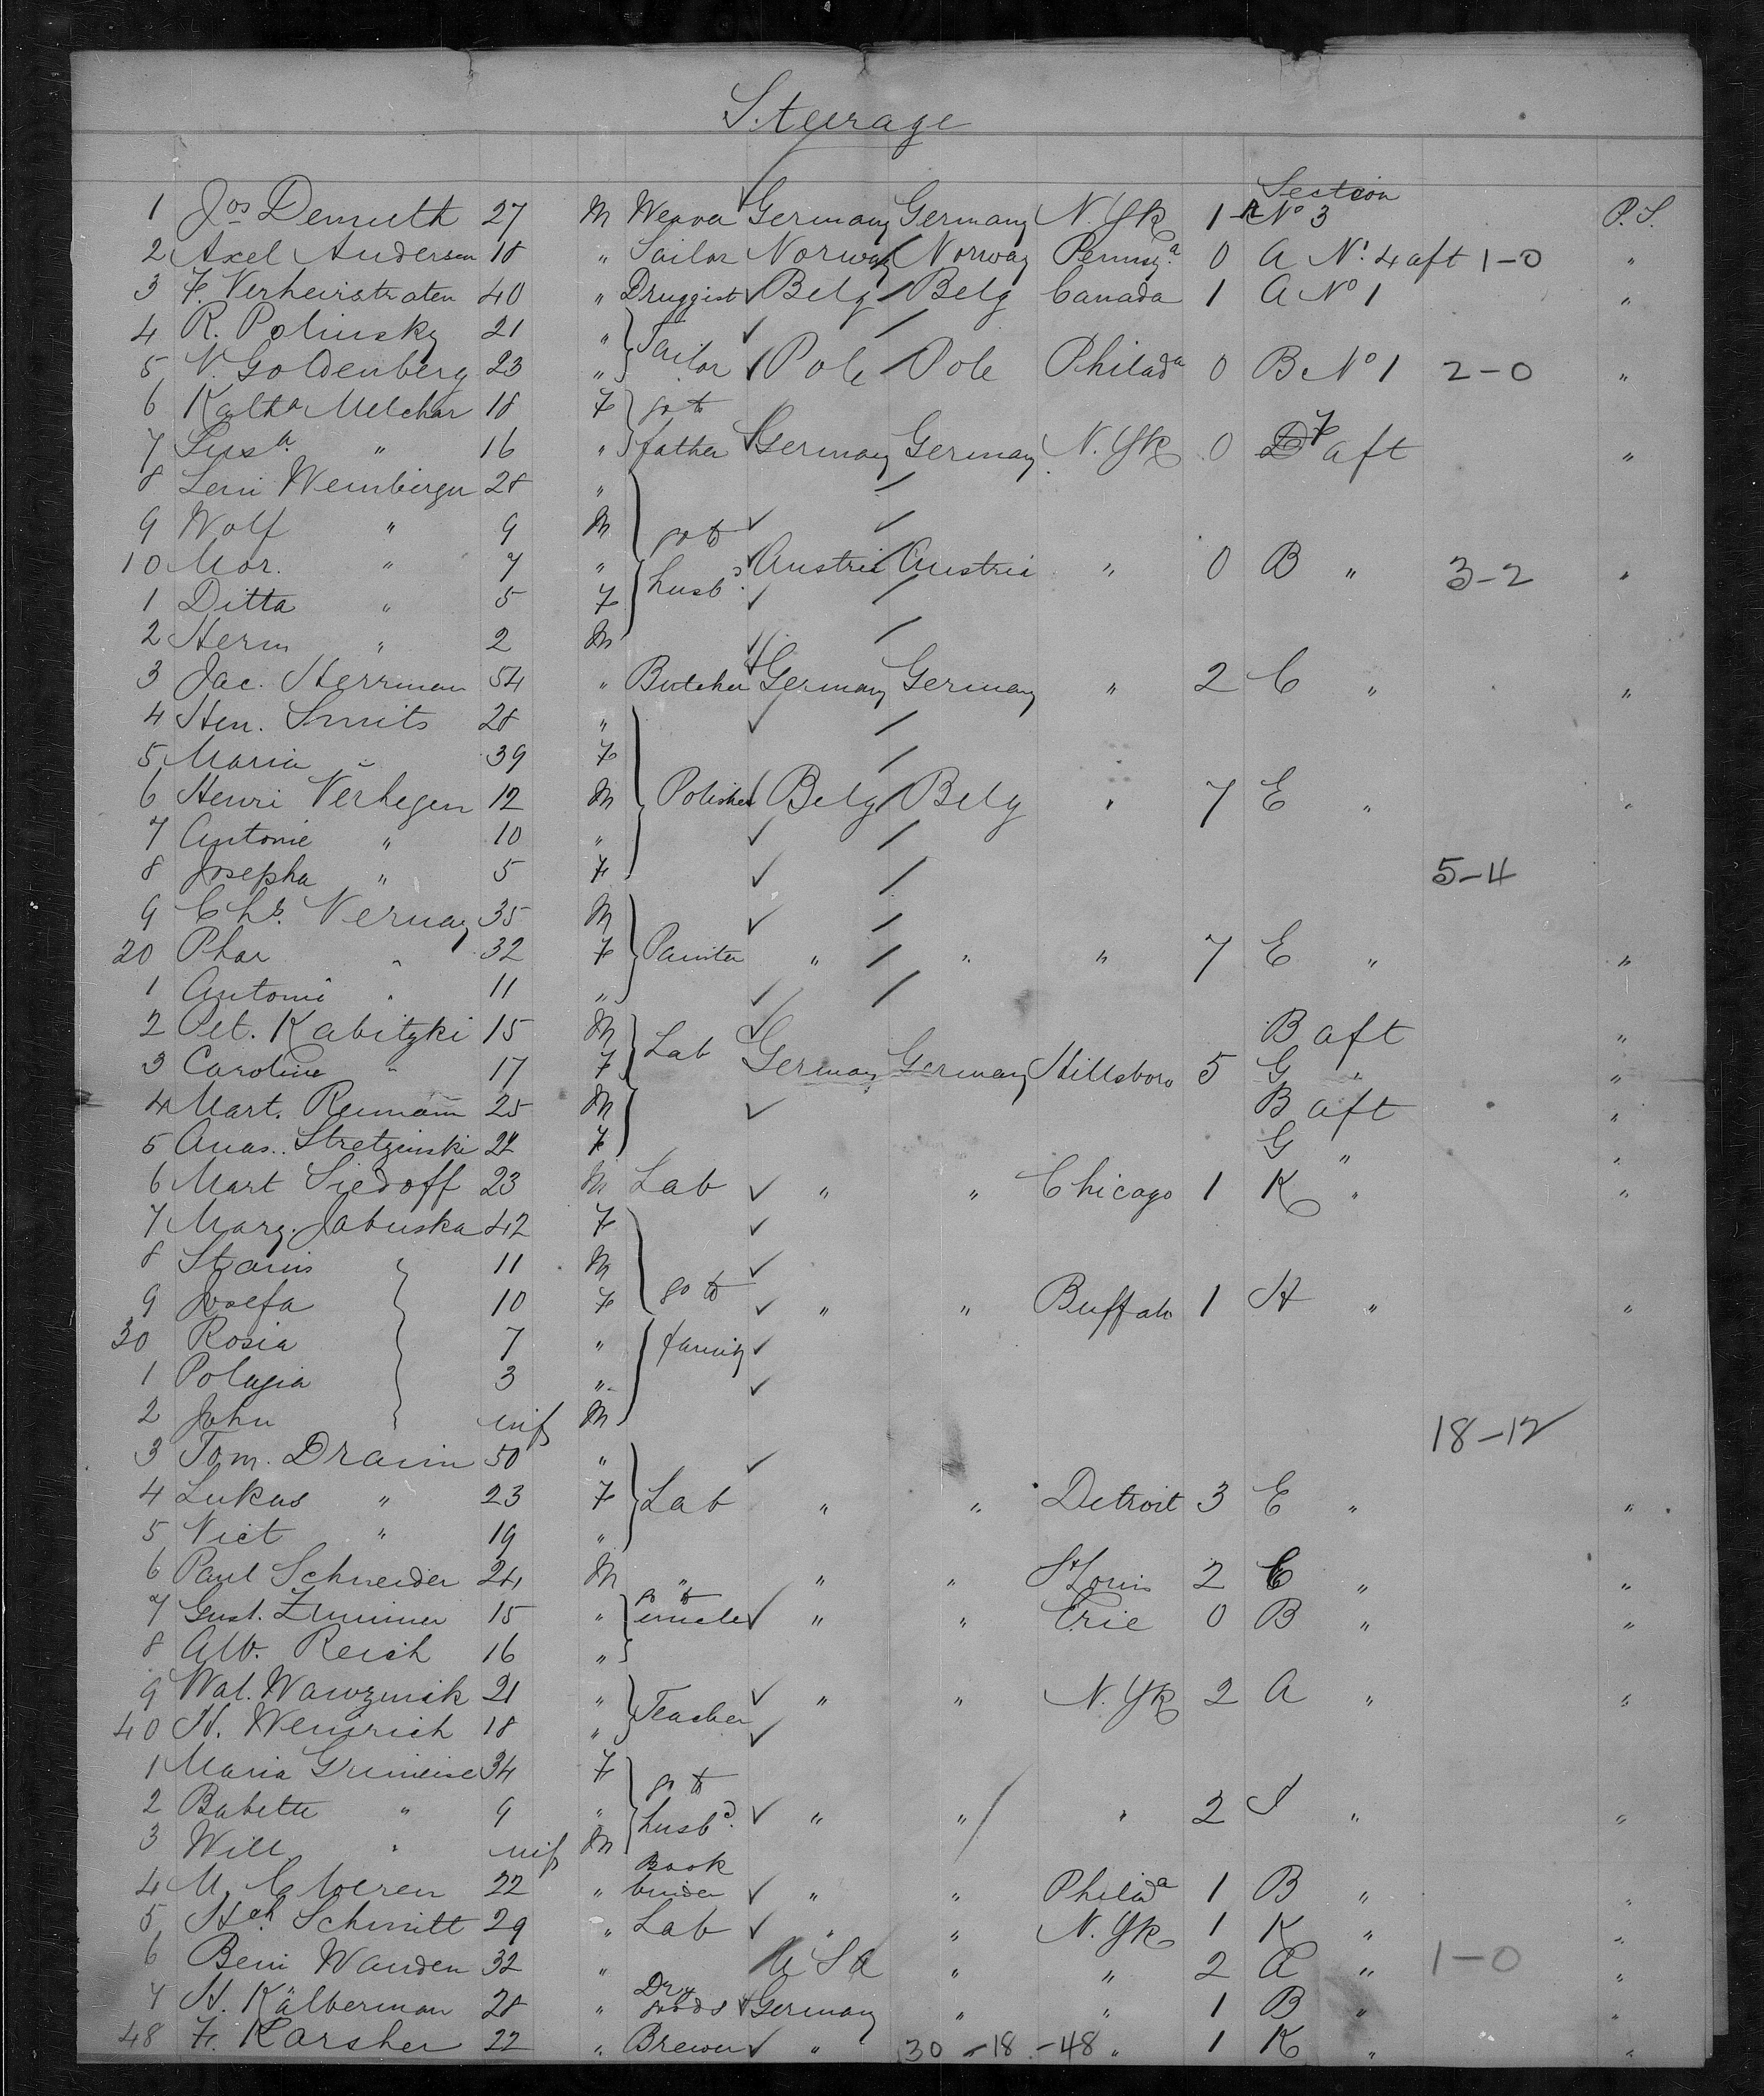 Steerage
Section
1 Jos Demuth 27 M Weaver Germany Germany N. Yk 1 A No 3 P.S.
2 Axel Andersen 18 " Sailor Norway Norway Pennsy.a 0 A No. 4 aft 1-0 "
3 F. Verheirstraten 40 " Druggist Belg Belg Canada 1 A No 1 "
4 R. Polinsky 21 "
5 V. Goldenberg 23 " Tailor Pole Pole Philada 0 B No 1 2-0 "
6 Katha Melchar 18 F go to
7 Susa. " 16 " father Germany Germany N. Yk 0 F aft "
8 Leni Weinberger 28 "
9 Wolf " 9 M go to
10 Mor. " 7 " husbd. Austria Austria " 0 B " 3-2 "
1 Ditta " 5 F
2 Herm " 2 M
3 Jac. Herrman 54 " Butcher Germany Germany " 2 C " "
4 Hen. Smits 28 "
5 Maria " 39 F
6 Henri Verhegen 12 M Polisher Belg Belg " 7 E " "
7 Antonie " 10 "
8 Josepha " 5 F 5-4
9 Chs. Vernay 35 M
20 Phar " 32 F Painter " " " 7 E " "
1 Antoni " 11 "
2 Pet. Kabitzki 15 M B aft "
3 Caroline " 17 F Lab Germany Germany Hillsboro 5 G " "
4 Mart. Reimann 25 M B aft "
5 Anas. Stretzinski 22 F G " "
6 Mart Siedoff 23 M Lab " " Chicago 1 K " "
7 Marg. Jabuska 42 F
8 Stanis 11 M
9 Josefa 10 F go to " " Buffalo 1 H " "
30 Rosia 7 " family
1 Polagia 3 "
2 John inf M 18-12
3 Tom. Drawin 50 "
4 Lukas " 23 F Lab " " Detroit 3 E " "
5 Vict " 19 "
6 Paul Schneider 24 M " " " St Louis 2 C " "
7 Gust. Zimmer 15 " go to uncle " " Erie 0 B " "
8 Alb. Reich 16 "
9 Wal. Wawzinik 21 " Teacher " " N. Yk 2 A " "
40 H. Weinrich 18 "
1 Maria Grimeise 34 F go to
2 Babette " 9 " husbd. " " " 2 I " "
3 Will " inf M
4 M. Cloeren 22 " Book binder " " Philada 1 B " "
5 Hch Schmitt 29 " Lab " " N. Yk 1 K " "
6 Beni Wanden 32 " U S A " " 2 A " 1-0 "
7 H. Kälberman 28 " Dry goods Germany " " 1 B " "
48 F. Karsher 22 " Brewer " 30-18-48 " 1 K " "